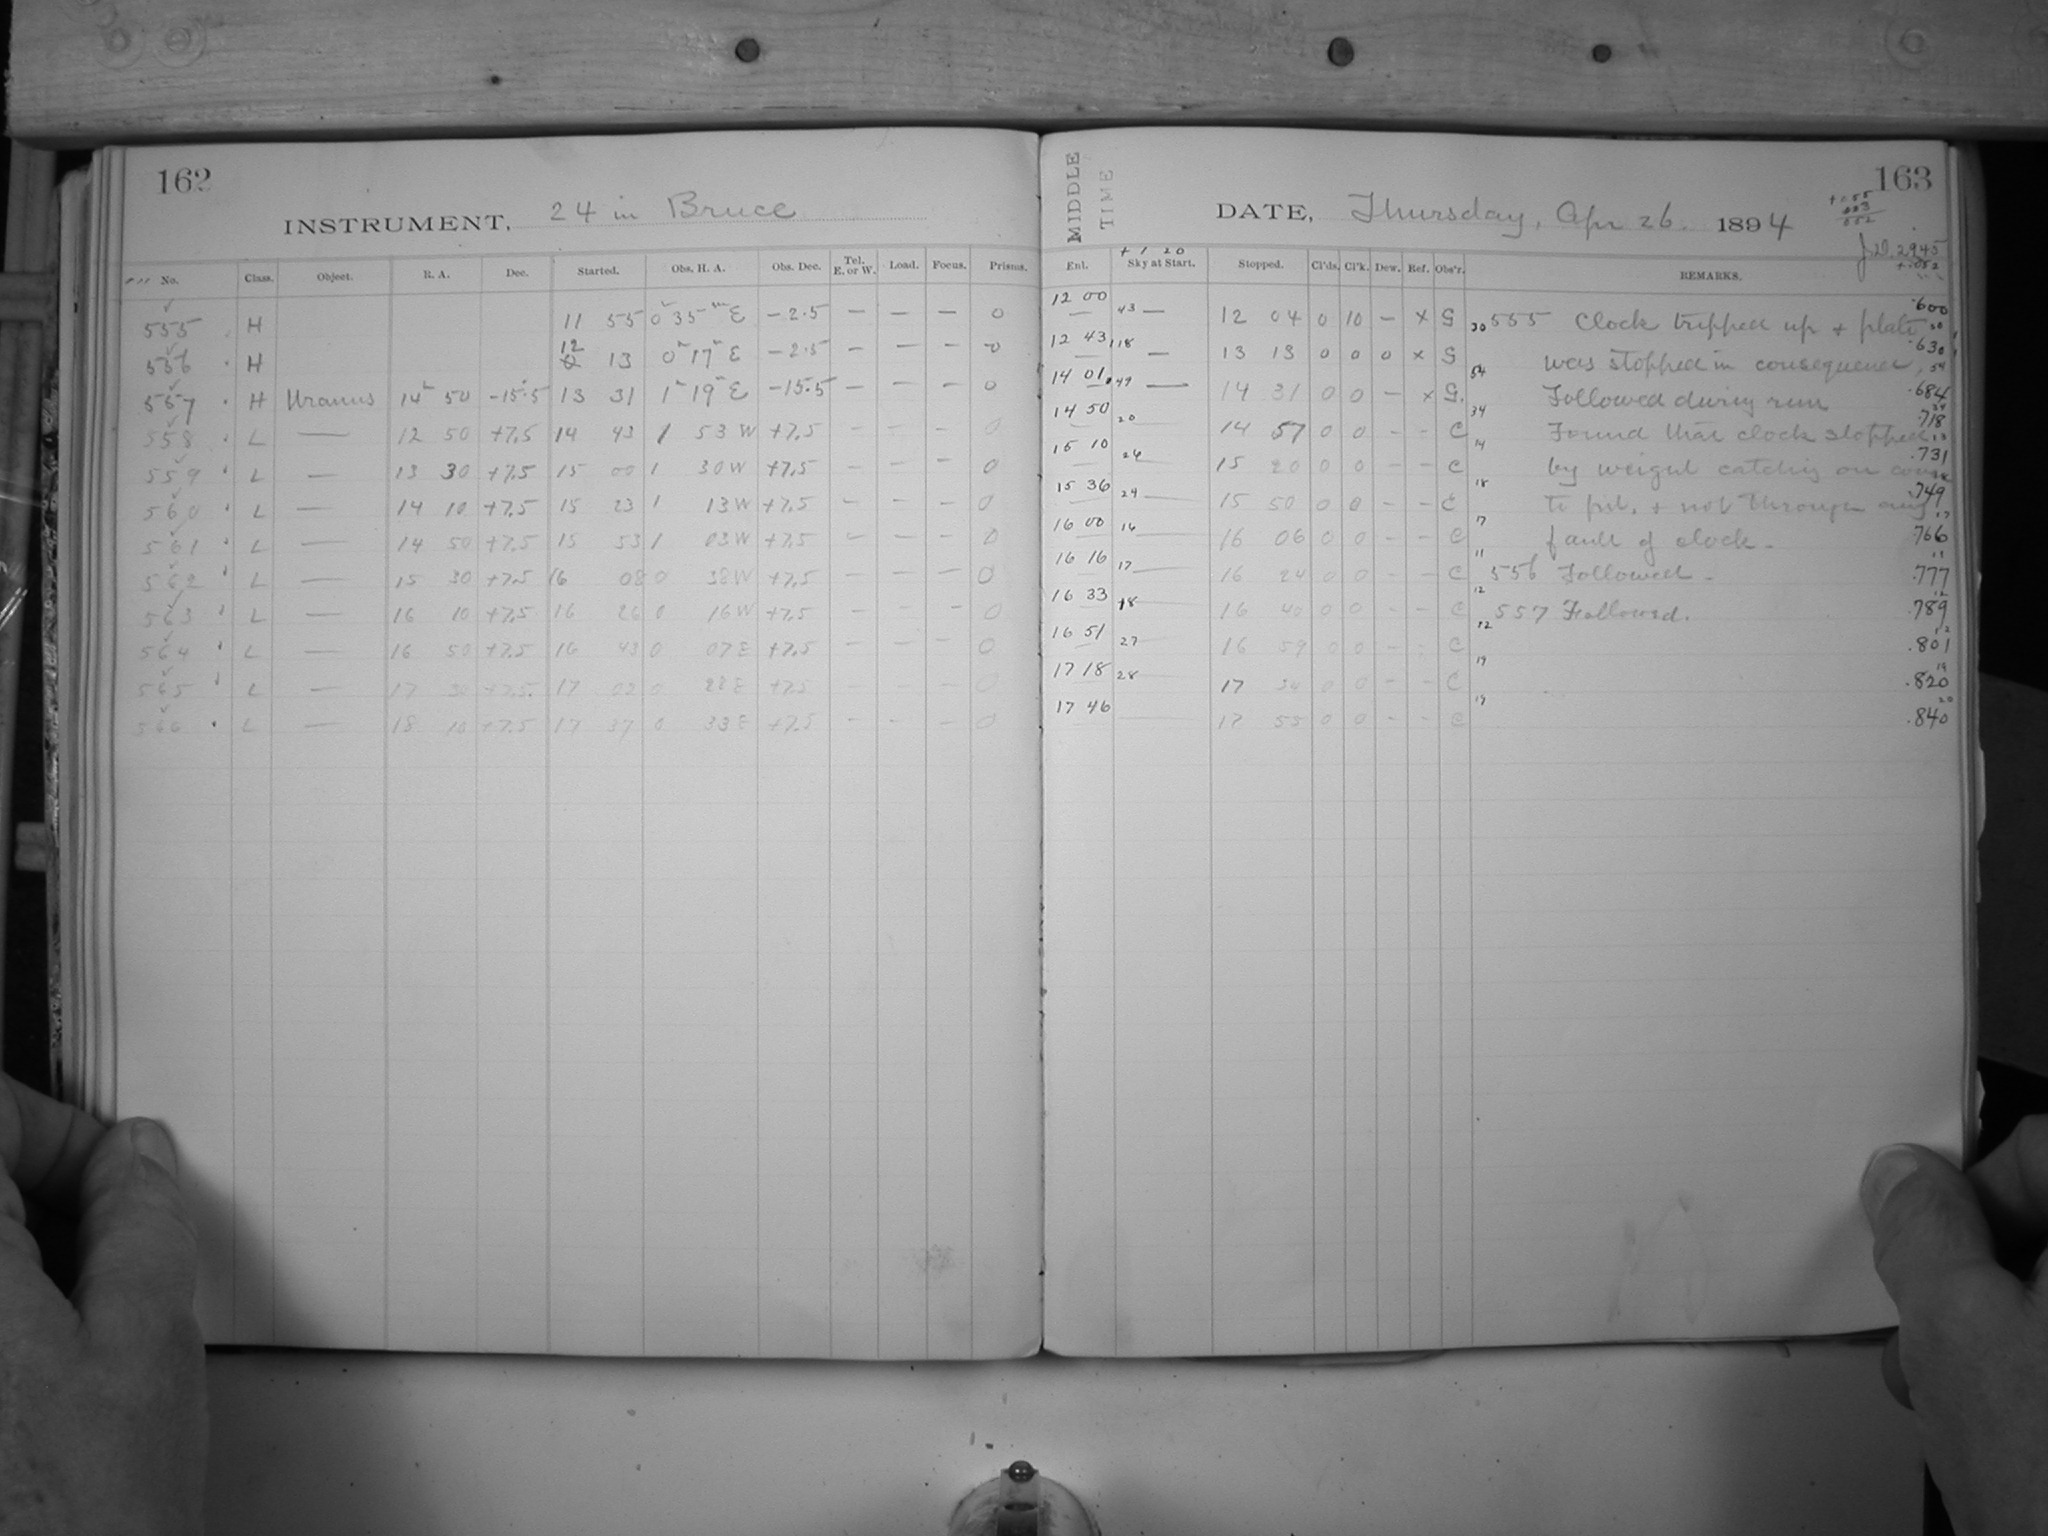 162
INSTRUMENT, 24 in Bruce
No. Class. Object. R. A. Dec. Started. Obs. H. A. Obs. Dec. Tel. E. or W. Load. Focus. Prisms.
555 H 11 55 0 35 m E -2.5 — — — 0
556 H 12 13 0 17 E -2.5 — — — 0
557 H Uranus 14 50 -15.5 13 31 1 19 E -15.5 — — — 0
558 L — 12 50 +7.5 14 43 1 53 W +7.5 — — — 0
559 L — 13 30 +7.5 15 00 1 30 W +7.5 — — — 0
560 L — 14 10 +7.5 15 23 1 13 W +7.5 — — — 0
561 L — 14 50 +7.5 15 53 1 03 W +7.5 — — — 0
562 L — 15 30 +7.5 16 08 0 38 W +7.5 — — — 0
563 L — 16 10 +7.5 16 26 0 16 W +7.5 — — — 0
564 L — 16 50 +7.5 16 43 0 07 E +7.5 — — — 0
565 L — 17 30 +7.5 17 02 0 28 E +7.5 — — — 0
566 L — 18 10 +7.5 17 37 0 33 E +7.5 — — — 0
MIDDLE TIME
163
DATE, Thursday, Apr 26. 1894
+.055
003
052
J.D. 2945
+.052
+ 1 20
Enl. Sky at Start. Stopped. Cl'ds. Cl'k. Dew. Ref. Obs'r. REMARKS.
12 00 43 — 12 04 0 10 — x G 30 555 Clock tripped up + plate .600
12 43 118 — 13 13 0 0 0 x G 54 was stopped in consequence, .630
14 01 49 — 14 31 0 0 — x G. 34 Followed during run .684
14 50 20 14 57 0 0 - - C 14 Found that clock stopped .718
15 10 26 15 20 0 0 - - C 18 by weight catching on .731
15 36 24 — 15 50 0 0 - - C 17 + not through any .749
16 00 16 — 16 06 0 0 - - C 11 fault of clock. .766
16 16 17 — 16 24 0 0 - - C 12 556 Followed. .777
16 33 18 — 16 40 0 0 - - C 12 557 Followed. .789
16 51 27 — 16 59 0 0 - - C 19 .801
17 18 28 — 17 34 0 0 - - C 19 .820
17 46 — 17 55 0 0 - - C .840